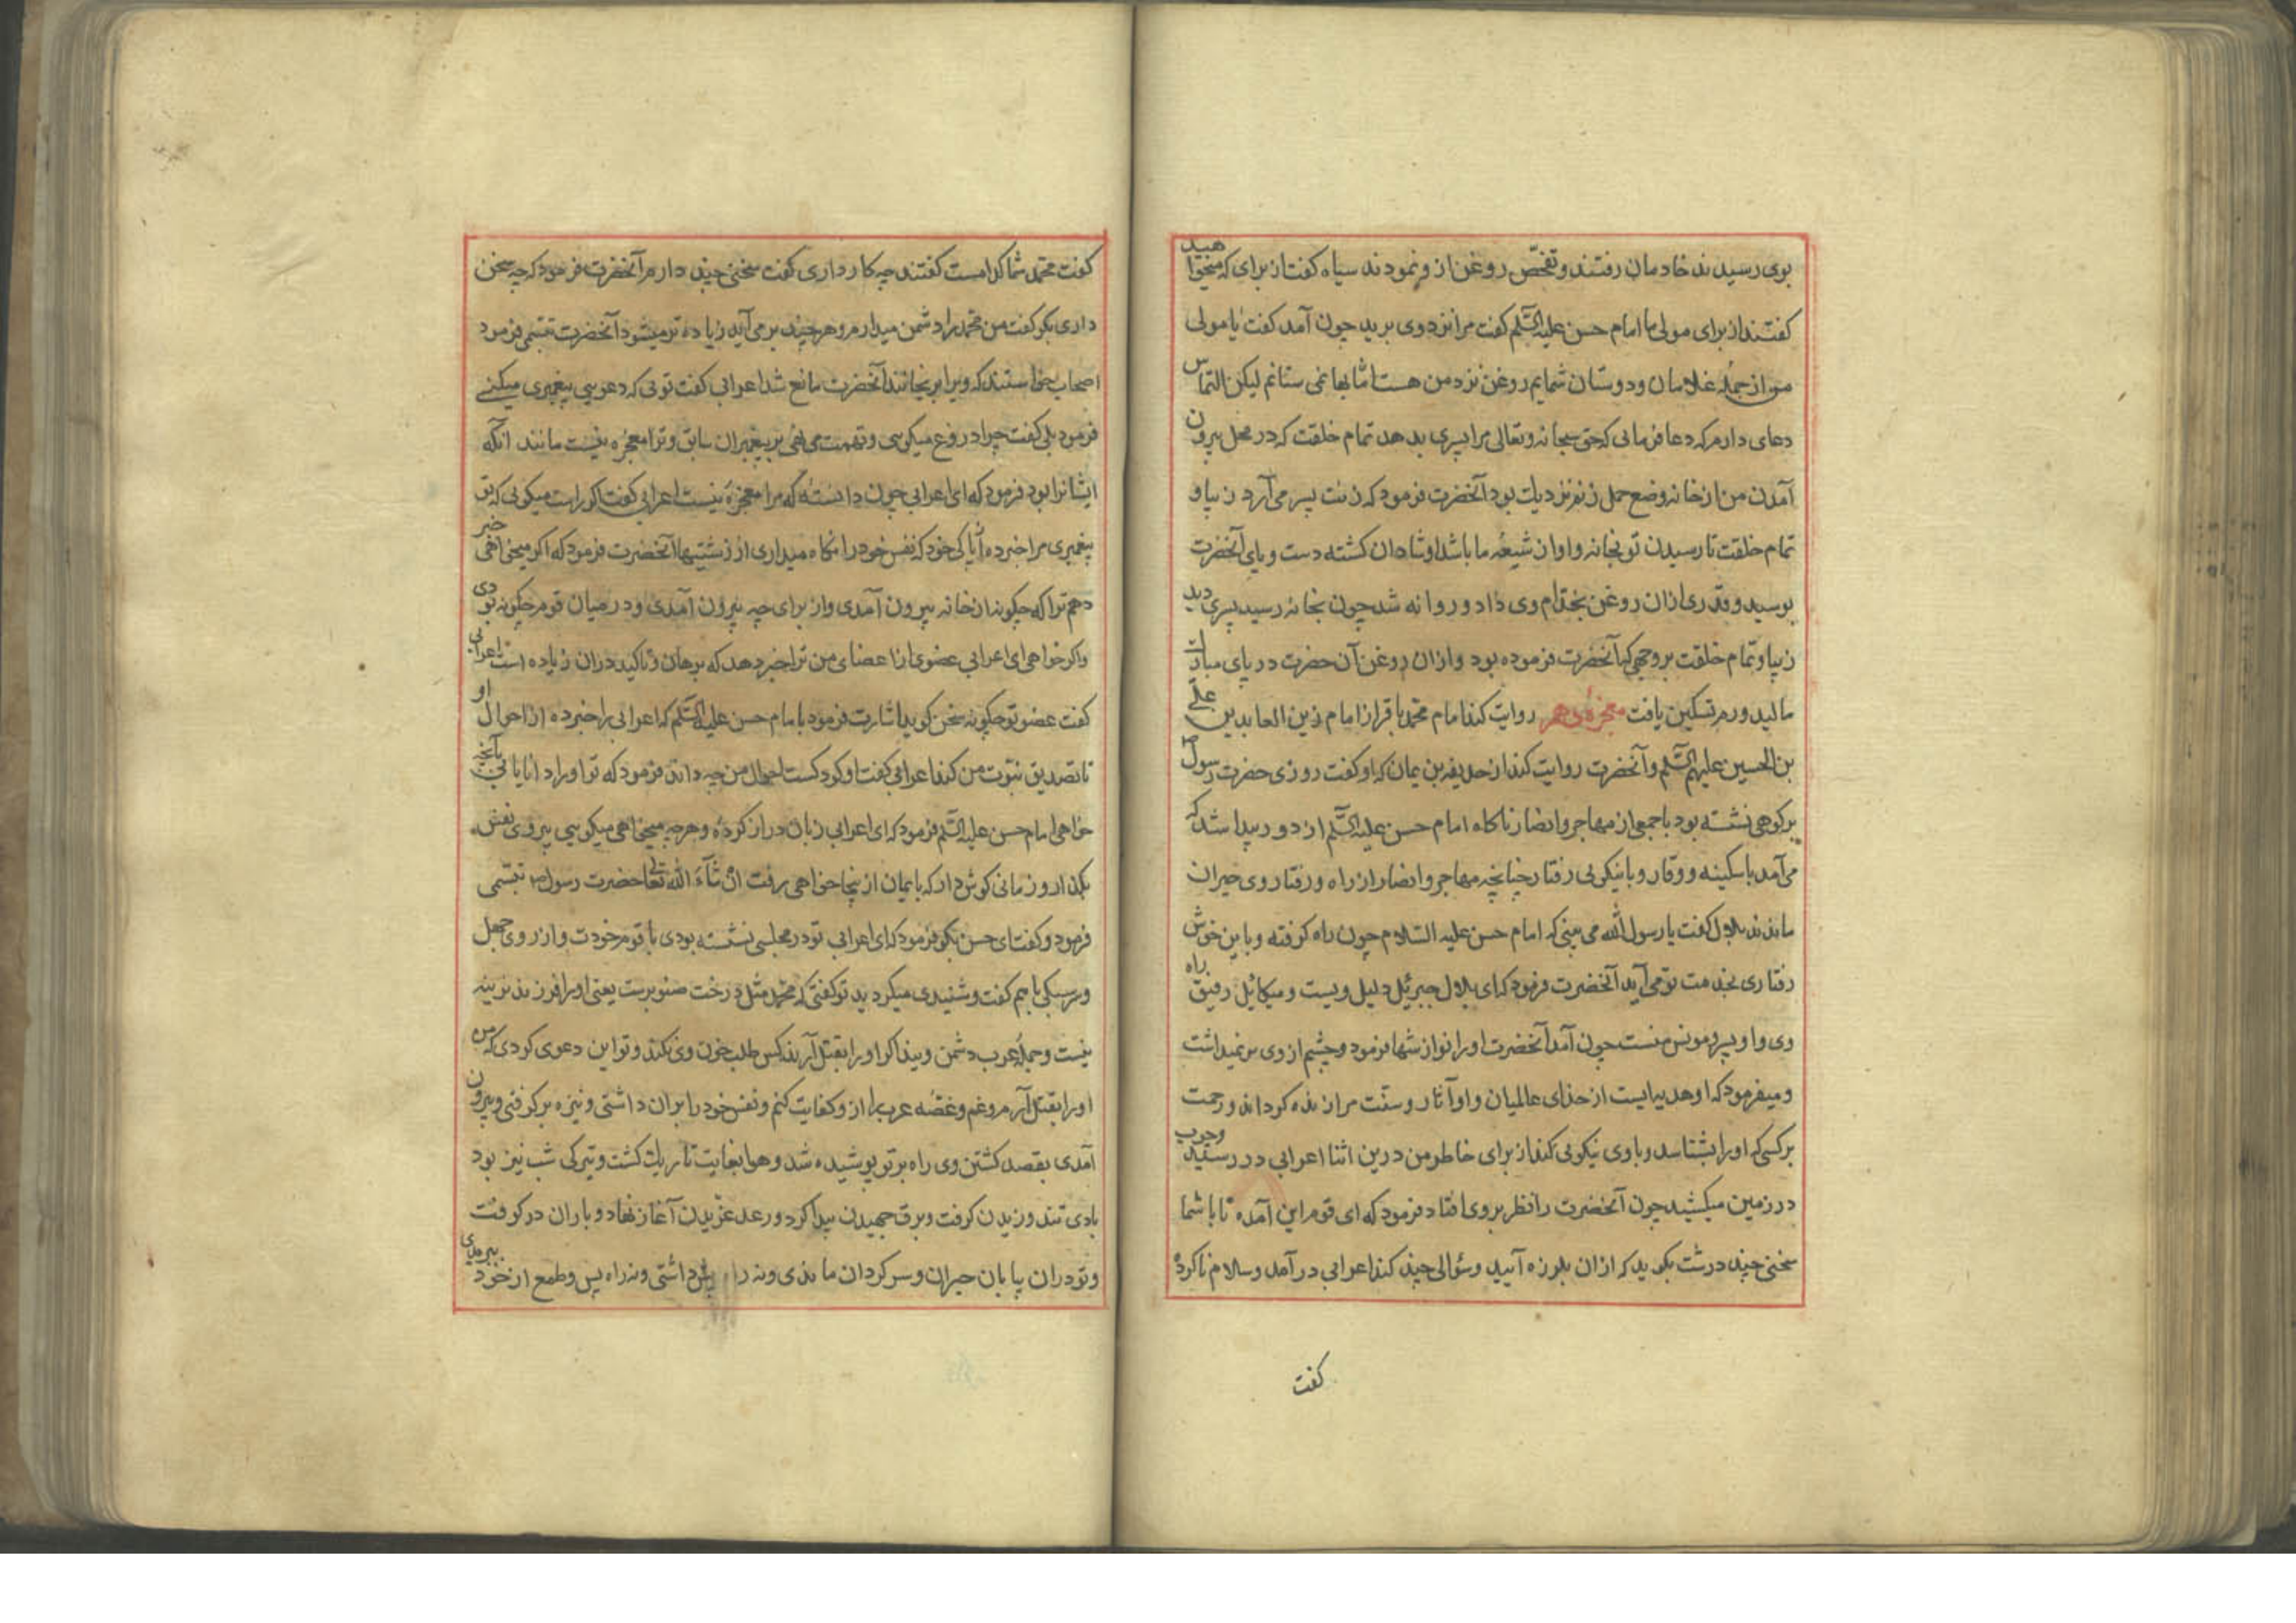 بوی رسیدند خادمان رفتند و تفحّص روغن ازو نمودند سیاه کفت از برای که میخواهید
کفتند از برای مولی ما امام حسن علیه السّلم کفت مرا نزد وی برید چون آمد کفت یا مولی
من از جملهٔ غلامان و دوستان شمایم روغن نزد من هست امّا بها نمی ستانم لیکن التماس
دعای دارم که دعا فرمائی که حق سبحانه وتعالی مرا پسری بدهد تمام خلقت که در محل بیرون
آمدن من از خانه وضع حمل زنم نزدیک بود آنحضرت فرمود که زنت پسر می آرد زیبا و
تمام خلقت تا رسیدن تو بخانه و او از شیعهٔ ما باشد او شادان کشته دست و پای آنحضرت
بوسید و قدری ازان روغن بخدّام وی داد و روانه شد چون بخانه رسید پسری دید
زیبا و تمام خلقت بر وجهی که آنحضرت فرموده بود و ازان روغن آن حضرت در پای مبارک
مالید ورم تسکین یافت معجزهٔ دهم روایت کند امام محمّد باقر از امام زین العابدین علی
بن الحسین علیهم السّلم و آنحضرت روایت کند از حذیفه بن یمان که او کفت روزی حضرت رسول
بر کوهی نشسته بود با جمعی از مهاجر و انصار ناکاه امام حسن علیه السّلم از دور پیدا شد که
می آمد با سکینه و وقار و با نیکوئی رفتار چنانچه مهاجر و انصار از راه و رفتار وی حیران
ماندند بلال کفت یا رسول الله می بینی که امام حسن علیه السّلام چون راه کرفته و باین خوش
رفتاری بخدمت تو می آید آنحضرت فرمود که ای بلال جبرئیل دلیل ویست و میکائیل رفیق راه
وی و او پسر و مونس منست چون آمد آنحضرت او را نوازشها فرمود و چشم از وی بر نمیداشت
و میفرمود که او هدیه ایست از خدای عالمیان و او آثار و سنّت مرا زنده کرداند و رحمت
بر کسی که او را بشناسد و با وی نیکوئی کند از برای خاطر من درین اثنا اعرابی در رسید و چوب
در زمین میکشید چون آنحضرت را نظر بر وی افتاد فرمود که ای قوم این آمده تا با شما
سخنی چند درشت بکوید که ازان بلرزه آیید و سؤالی چند کند اعرابی در آمد و سلام ناکرده
کفت
کفت محمّد شما کدامست کفتند چه کار داری کفت سخنی چند دارم آنحضرت فرمود که چه سخن
داری بکو کفت من محمّد را دشمن میدارم و هر چند بر می آید زیاده تر میشود آنحضرت تبسّمی فرمود
اصحاب خواستند که ویرا برنجانند آنحضرت مانع شد اعرابی کفت توئی که دعویی پیغمبری میکنی
فرمود بلی کفت چرا دروغ میکوی و تهمت می نهی بر پیغمبران سابق و ترا معجزه نیست مانند آنکه
ایشانرا بود فرمود که ای اعرابی چون دانستهٔ که مرا معجزهٔ نیست اعرابی کفت اکر راست میکوئی که تو
پیغمبری مرا خبر ده آیا کی خود که نفس خود را نکاه میداری از زشتیها آنحضرت فرمود که اکر میخواهی خبر
دهم ترا که چکونه از خانه بیرون آمدی و از برای چه بیرون آمدی و در میان قوم چکونه بودی
و اکر خواهی ای اعرابی عضوی از اعضای من ترا خبر دهد که برهان و تاکید دران زیاده است اعرابی
کفت عضو تو چکونه سخن کوید اشارت فرمود بامام حسن علیه السّلم که اعرابی را خبر ده از احوال او
تا تصدیق نبوّت من کند اعرابی کفت او کودکست احوال من چه داند فرمود که تو او را دانا یابی بآنچه
خواهی امام حسن علیه السّلم فرمود که ای اعرابی زبان دراز کردهٔ و هرچه میخواهی میکویی پیروی نفس
بکذار و زمانی کوش دار که با ایمان از پنجا خواهی رفت ان شآء الله تعالی حضرت رسول ص تبسّمی
فرمود و کفت ای حسن بکو فرمود که ای اعرابی تو در مجلسی نشسته بودی با قوم خودت و از روی جهل
و سبکی با هم کفت و شنیدی میکردید تو کفتی که محمّد مثل درخت صنوبرست یعنی او را فرزند نرینه
نیست و جملهٔ عرب دشمن ویند اکر او را بقتل آرند کس طلب خون وی نکند و تو این دعوی کردی که من
او را بقتل آرم و غم و غصّه عرب را ازو کفایت کنم و نفس خود را بران داشتی و نیزه بر کرفتی و بیرون
آمدی بقصد کشتن وی راه بر تو پوشیده شد و هوا بغایت تاریک کشت و تیرکی شب نیز بود
بادی تند وزیدن کرفت و برق جهیدن پیدا کرد و رعد غرّیدن آغاز نهاد و باران در کرفت
و تو دران بیابان حیران و سر کردان ماندی و نه راه پیش داشتی و نه راه پس و طمع از خود